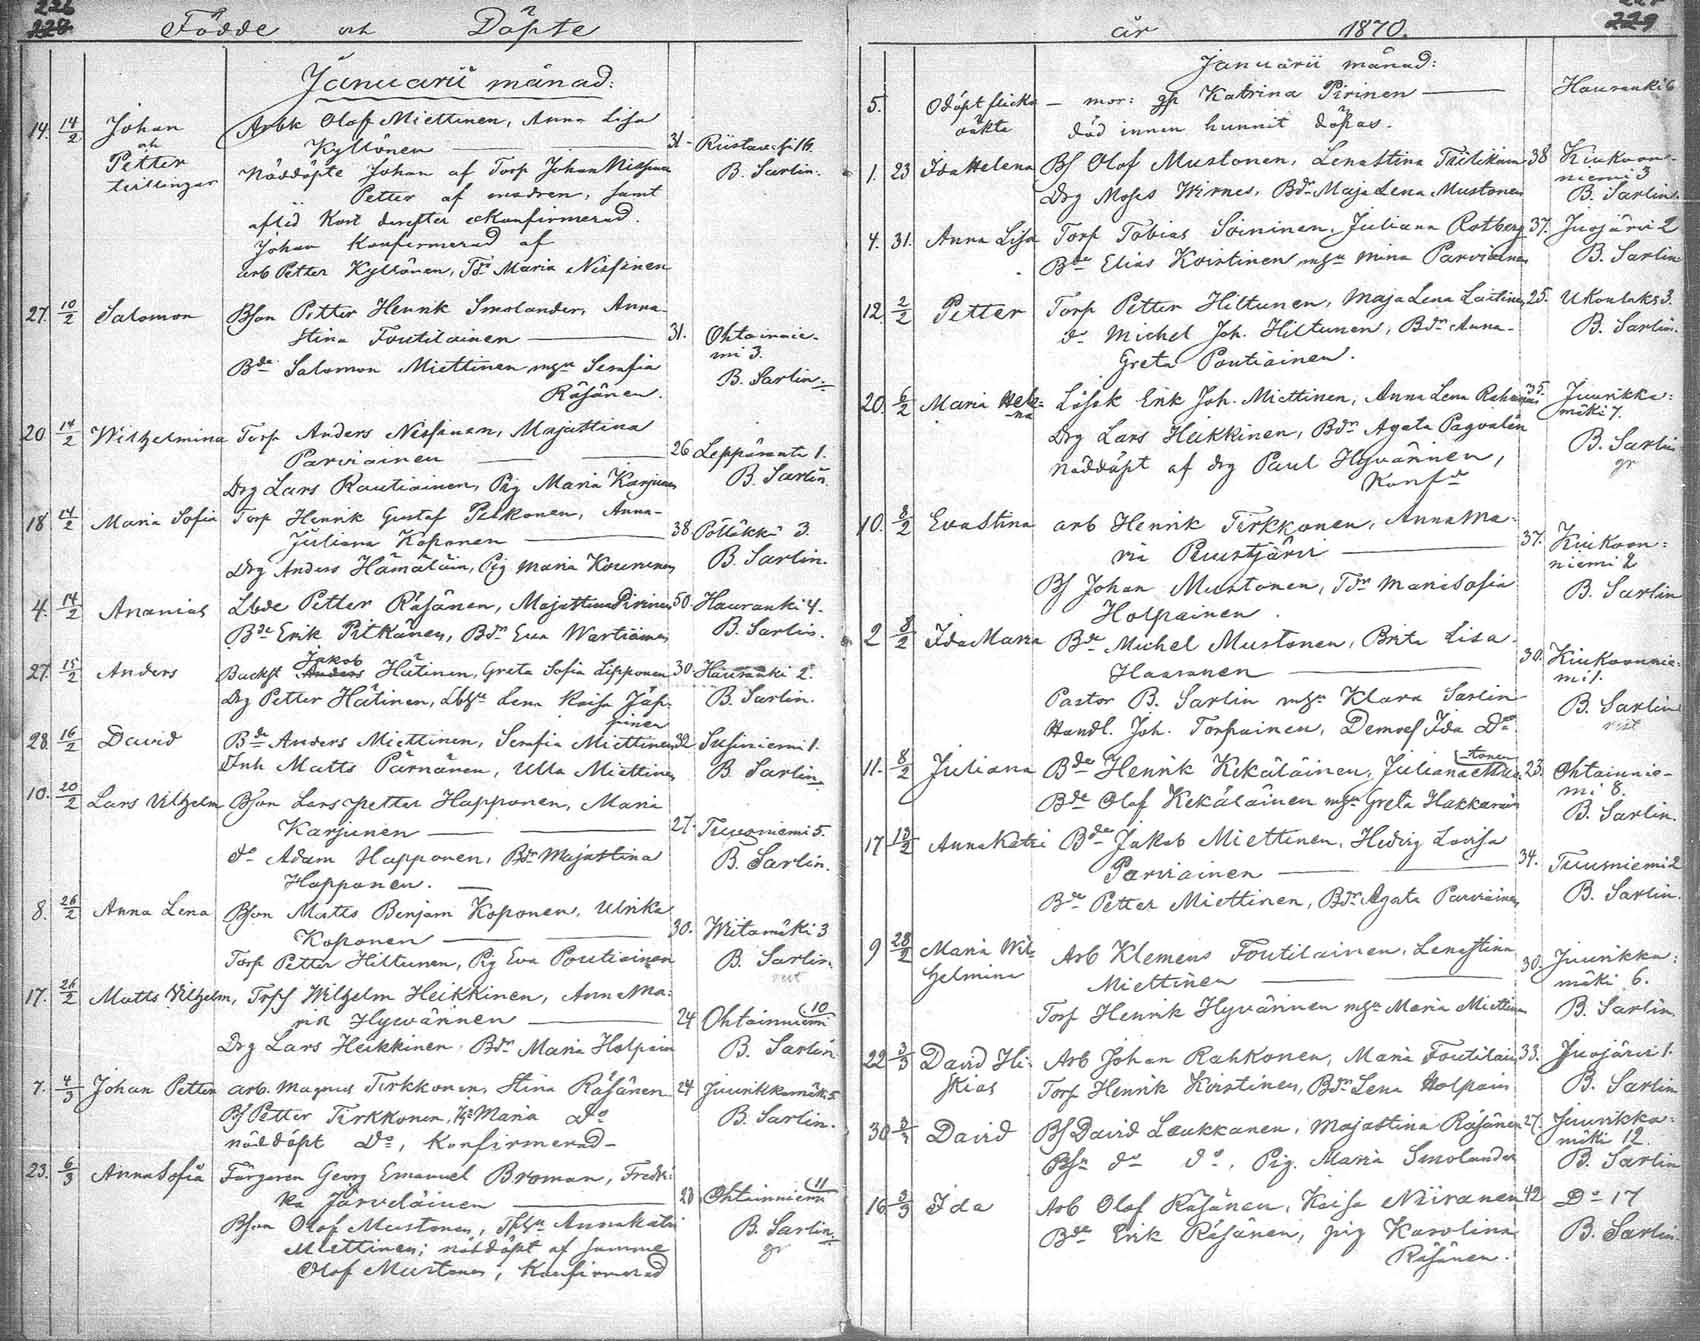 226
228
Födde och Döpte
Januarii månad:
14. 14/2 Johan och Petter tvillingar
Arbk Olof Miettinen, Anna Lisa
Kyllönen 31. Riistavesi 16.
Nöddöpte Johan af Torp Johan Nissinen B. Sarlin.
Petter af modren, samt
aflid kort derefter okonfirmerad.
Johan konfirmerad af
arb Petter Kyllönen, Tdr Maria Nissinen
27. 10/2 Salomon Bson Petter Henrik Smolander, Anna-
Stina Foutilainen 31. Ohtainniemi 3.
Bde Salomon Miettinen mhu Serafia B. Sarlin.
Räsänen.
20 14/2 Wilhelmina Torp Anders Nissinen, Majastina
Parviainen 26 Leppäranta 1.
Drg Lars Rautiainen, Pig Maria Karjunen B. Sarlin.
18 14/2 Maria Sofia Torp Henrik Gustaf Pekkonen, Anna-
Juliana Koponen 38 Pölläkkä 3.
Drg Anders Hämäläin, Pig Maria Kouvunen B. Sarlin.
4. 14/2 Ananias Lbde Petter Räsänen, Majastina Pirinen 50. Hauranki 4.
Bde Erik Pitkänen, Bdr Eva Wartiainen B. Sarlin.
27. 15/2 Anders Backst Jakob Hätinen, Greta Sofia Lipponen 30. Hauranki 2.
Drg Petter Hätinen, Lbhu Lena Kaisa Jäppinen B. Sarlin.
28. 16/2 David Bde Anders Miettinen, Serafia Miettinen 32 Susiniemi 1.
Inh Matts Pärnänen, Ulla Miettinen B. Sarlin
10. 20/2 Lars Vilhelm Bson Lars Petter Happonen, Maria
Karjunen 27. Tuusniemi 5.
do Adam Happonen, Bdr Majastina B. Sarlin.
Happonen.
8. 26/2 Anna Lena Bson Matts Benjam Koponen, Ulrika
Koponen 30. Wiitamäki 3
Torp Petter Hiltunen, Pig Eva Poutiainen B. Sarlin.
17. 26/2 Matts Vilhelm, Trpf Wilhelm Heikkinen, Anna Ma-
ria Hyvärinen 24 Ohtainniemi 10
Drg Lars Heikkinen, Bdr Maria Holpain B. Sarlin.
7. 4/3 Johan Petter arb. Magnus Tirkkonen, Stina Räsänen 24 Juurikkamäki 5
Bf Petter Tirkkonen, Maria Do B. Sarlin.
nöddöpt Do, Konfirmerad
23. 6/3 Anna Sofia Färgaren Georg Emanuel Broman, Fredri-
ka Järveläinen 28 Ohtainniemi 11
Bson Olof Mustonen, Anna Katri B. Sarlin.
Miettinen; nöddöpt af samme gr
Olof Mustonen, Konfirmerad
229
år 1870.
Januarii månad:
5. Odöpt flicka — mor: Katrina Pirinen — Hauranki 6
oäkta död innan hunnit döpas.
1. 23 Ida Helena Bf Olof Mustonen, Lenastina Tiilikain 38 Kiukoonniemi 3
Drg Moses Wirnes, Bdr Maja Lena Mustonen B. Sarlin.
4. 31. Anna Lisa Torp Tobias Soininen, Juliana Rotberg 37. Juojärvi 2
Bde Elias Koistinen mhu Mina Parviainen B. Sarlin
12. 2/2 Petter Torp Petter Hiltunen, Maja Lena Laitinen 25. Ukonlaks 3.
do Michel Joh. Hiltunen, Bdr Anna- B. Sarlin.
Greta Poutiainen.
20. 6/2 Maria Hele-na Lösk Erik Joh. Miettinen, Anna Lena Rahunen 35. Juurikka-
mäki 7.
Drg Lars Heikkinen, Bdr Agata Pagvalén B. Sarlin
nöddöpt af drg Paul Hyvärinen, gr
Konfd
10. 8/2 Eva Stina arb Henrik Tirkkonen, Anna Ma-
ria Ruustjärvi 37. Kiukoon-
niemi 2
Bf Johan Mustonen, Tdr Maria Sofia B. Sarlin
Holpainen.
2 8/2 Ida Maria Bde Michel Mustonen, Brita Lisa
Haaranen 30. Kiukoonnie-
mi 1.
Pastor B. Sarlin mhu Klara Sarlin B. Sarlin
Handl. Joh. Torpainen, Demoss Ida Do.
11. 8/2 Juliana Bde Henrik Kekäläinen, Juliana Mustonen 23. Ohtainnie-
mi 8.
Bde Olof Kekäläinen mhu Greta Hakkarain B. Sarlin.
17 13/2 Anna Katri Bde Jakob Miettinen, Hedvig Lovisa
Parviainen 34. Tuusniemi 2
Bde Petter Miettinen, Bdr Agata Parviainen B. Sarlin.
9 28/2 Maria Wil-helmina Arb Klemens Foutilainen, Lenastina
Miettinen 30. Juurikka-
mäki 6.
Torp Henrik Hyvärinen mhu Maria Miettinen B. Sarlin.
22 3/3 David Hi-skias Arb Johan Rahkonen, Maria Foutilain 33. Juojärvi 1.
Torp Henrik Koistinen, Bdr Lena Holpain B. Sarlin
30 3/3 David Bf David Laukkanen, Majastina Räsänen 27. Juurikka-
mäki 12.
Bhu do do, Pig. Maria Smolander B. Sarlin
16 3/3 Ida Arb Olof Räsänen, Kaisa Niiranen 42 Do 17
Bde Erik Räsänen, pig Karolina B. Sarlin.
Räsänen.